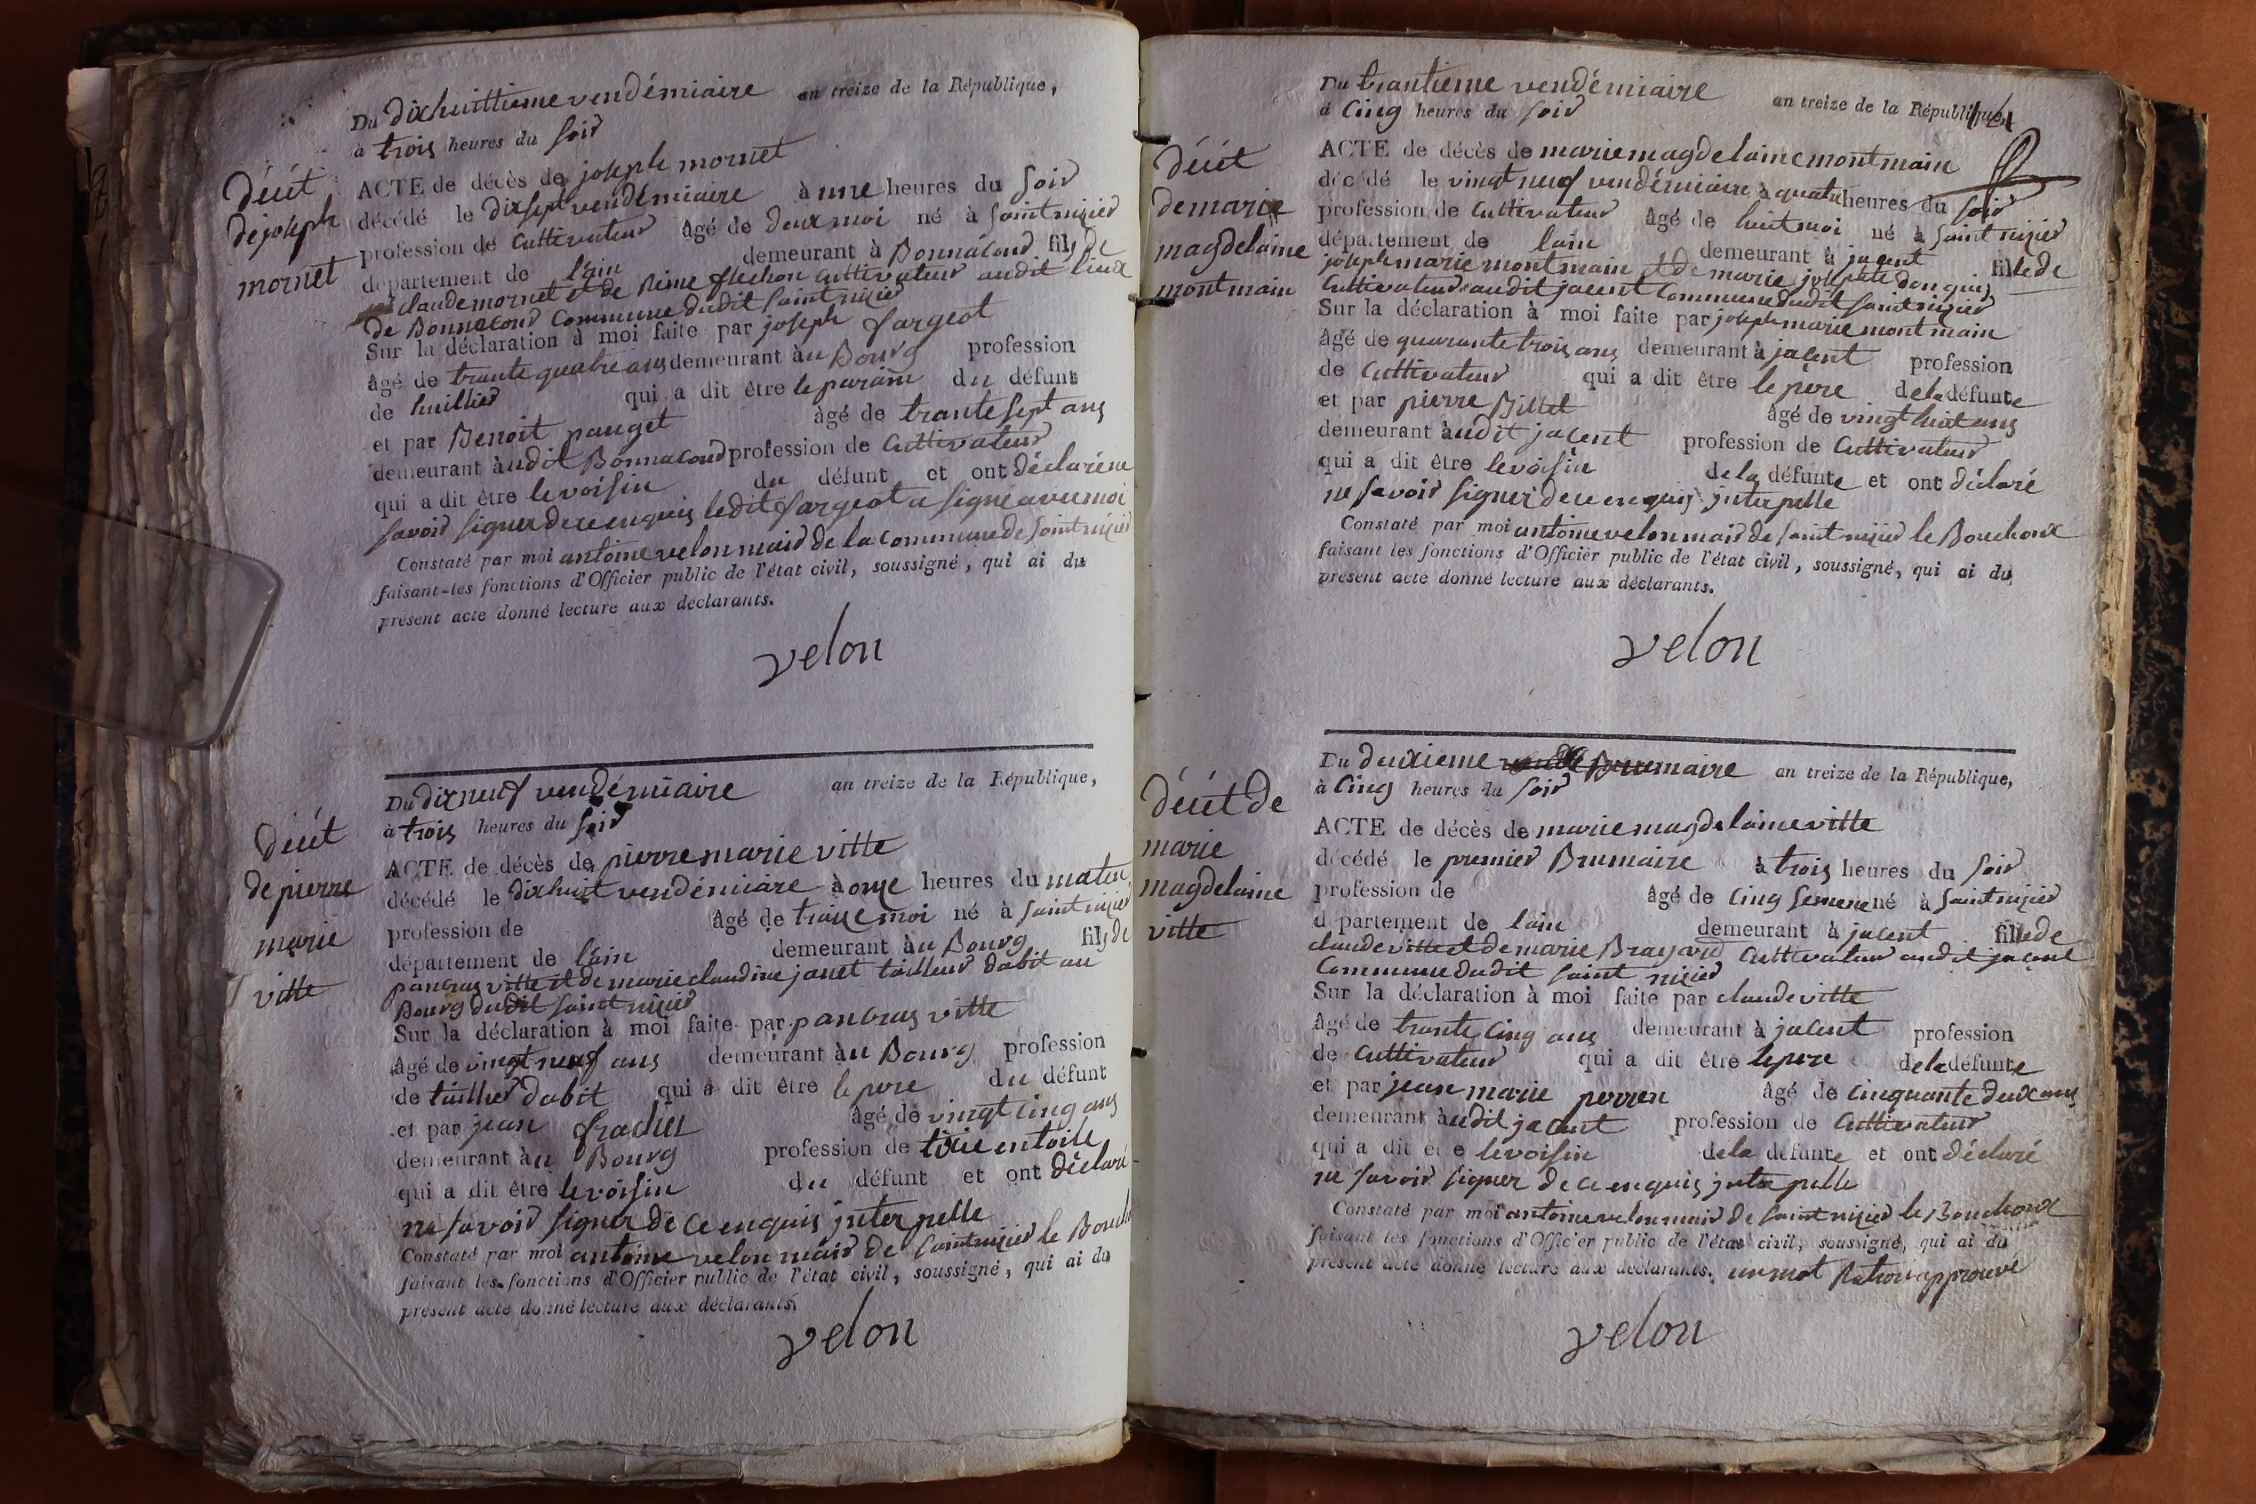 Du dixhuittieme vendémiaire an treize de la République,
à trois heures du soir
décét
de joseph
mornet
ACTE de décès de joseph mornet
décédé le dix sept vendémiaire à une heures du soir
profession de cultivateur âgé de deux moi né à saint nizier
département de l'ain demeurant à Bonnacoud fils de
claude mornet et de flechon cultivateur audit lieux
de Bonnacoud commune dudit saint nizier
Sur la déclaration à moi faite par joseph fargeot
âgé de trante quatre ans demeurant àu Bourg profession
de huillier qui a dit être le parain du défunt
et par Benoit pauget âgé de trante sept ans
demeurant àudit Bonnacoud profession de cultivateur
qui a dit être le voisin du défunt et ont déclaré ne
savoir signer de ce enquis ledit fargeot a signé avec moi
Constaté par moi antoine velon maire de la commune de saint nizier
faisant les fonctions d'Officier public de l'état civil, soussigné, qui ai du
présent acte donné lecture aux déclarants.
velon
Du dix neuf vendémiaire an treize de la République,
à trois heures du soir
décét
de pierre
marie
ville
ACTE de décès de pierre marie ville
décédé le dixhuit vendémiaire à onze heures du matin
profession de âgé de traize moi né à saint nizier
département de lain demeurant àu Bourg fils de
pancras ville et de marie claudine janet tailleur dabit au
Bourg dudit saint nizier
Sur la déclaration à moi faite par pancras ville
âgé de vingt neuf ans demeurant àu Bourg profession
de taillier dabit qui a dit être le pere du défunt
et par jean âgé de vingt cinq ans
demeurant àu Bourg profession de tixie en toile
qui a dit être le voisin du défunt et ont déclaré
ne savoir signer de ce enquis jnterpelle
Constaté par moi antoine velon maire de saint nizier le Bouch
faisant les fonctions d'Officier public de l'état civil, soussigné, qui ai du
présent acte donné lecture aux déclarants.
velon
Du trantieme vendémiaire an treize de la République,
à cinq heures du soir
décét
de marie
magdelaine
montmain
ACTE de décès de marie magdelaine montmain
décédé le vingt neuf vendémiaire à quatre heures du soir
profession de cultivateur âgé de huit moi né à saint nizier
département de lain demeurant à jacent fille de
joseph marie montmain et de marie josephte donguis
cultivateur audit jacent commune dudit saint nizier
Sur la déclaration à moi faite par joseph marie montmain
âgé de quarante trois ans demeurant à jacent profession
de cultivateur qui a dit être le père de la défunte
et par pierre Billet âgé de vingt huit ans
demeurant àudit jacent profession de cultivateur
qui a dit être le voisin de la défunte et ont déclaré
ne savoir signer de ce enquis jnterpelle
Constaté par moi antoine velon maire de saint nizier le Bouchoux
faisant les fonctions d'Officier public de l'état civil, soussigné, qui ai du
présent acte donné lecture aux déclarants.
velon
Du deuxieme Brumaire an treize de la République,
à cinq heures du soir
décét de
marie
magdelaine
ville
ACTE de décès de marie magdelaine ville
décédé le premier Brumaire à trois heures du soir
profession de âgé de cinq semene né à saint nizier
département de lain demeurant à jacent fille de
claude ville et de marie Brayard cultivateur audit jacent
commune dudit saint nizier
Sur la déclaration à moi faite par claude ville
âgé de trante cinq ans demeurant à jacent profession
de cultivateur qui a dit être le pere de la défunte
et par jean marie perren âgé de cinquante deux ans
demeurant àudit jacent profession de cultivateur
qui a dit être le voisin de la défunte et ont déclaré
ne savoir signer de ce enquis jnterpelle
Constaté par moi antoine velon maire de saint nizier le Bouchoux
faisant les fonctions d'Officier public de l'état civil, soussigné, qui ai du
présent acte donné lecture aux déclarants. un mot approuvé
velon